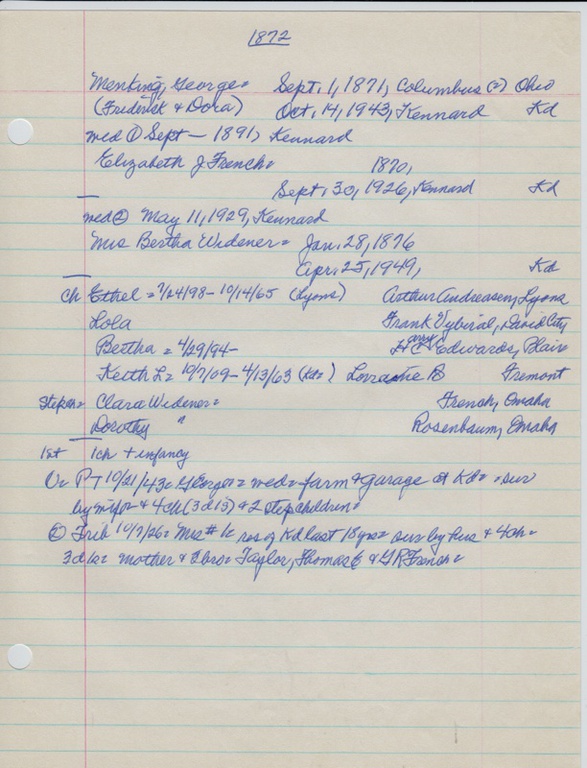 1872
Menking, George = Sept. 1, 1871, Columbus (?) Ohio
(Frederick & Dora) Oct. 14, 1943, Kennard Kd
med ① Sept — 1891, Kennard
Elizabeth J French = 1870,
Sept, 30, 1926, Kennard Kd
med ② May 11, 1929, Kennard
Mrs Bertha Widener = Jan. 28, 1876
Apr. 25, 1949, Kd
Ch Ethel = 7/24/98 - 10/14/65 (Lyons) Arthur Andreasen, Lyons
Lola Frank Vybiral, David City
Bertha = 4/29/94 - Edwards, Blair
Keith L = 10/7/09 - 4/13/63 (Kd =) Lorraine B Fremont
Step ch = Clara Widener = French, Omaha
Dorothy " Rosenbaum, Omaha
1st 1ch + infancy
PT 10/21/43 = George = med = farm & garage at Kd = sur
by & 4ch (3d 1s) & 2 stepchildren =
② Trib 10/7/26 = Mrs # 1 = res of Kd last 18 yrs = sur by hus & 4ch =
3d 1s = mother & bros = Taylor, Thomas & G R French =